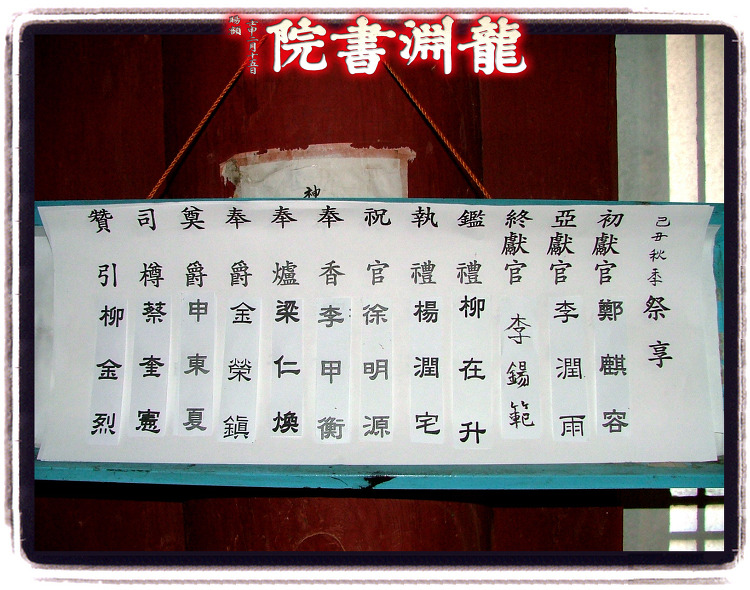 龍淵書院
己丑秋季祭享
初獻官 鄭麒容
亞獻官 李潤雨
終獻官 李錫範
鑑禮 柳在升
執禮 楊潤宅
祝官 徐明源
奉香 李甲衡
奉爐 梁仁煥
奉爵 金榮鎭
奠爵 申東夏
司樽 蔡奎憲
贊引 柳金烈
神